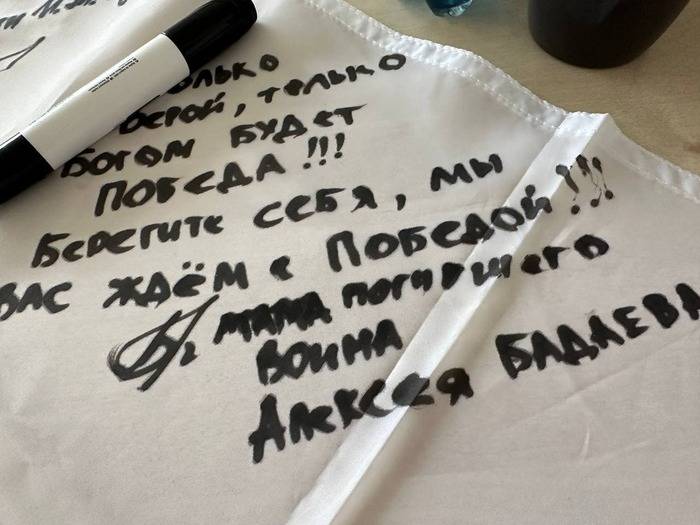 только
верой, только
Богом будет
ПОБЕДА !!!
Берегите себя, мы
вас ждём с Победой!!!
мама погибшего
воина
Алексея БАДАЕВА